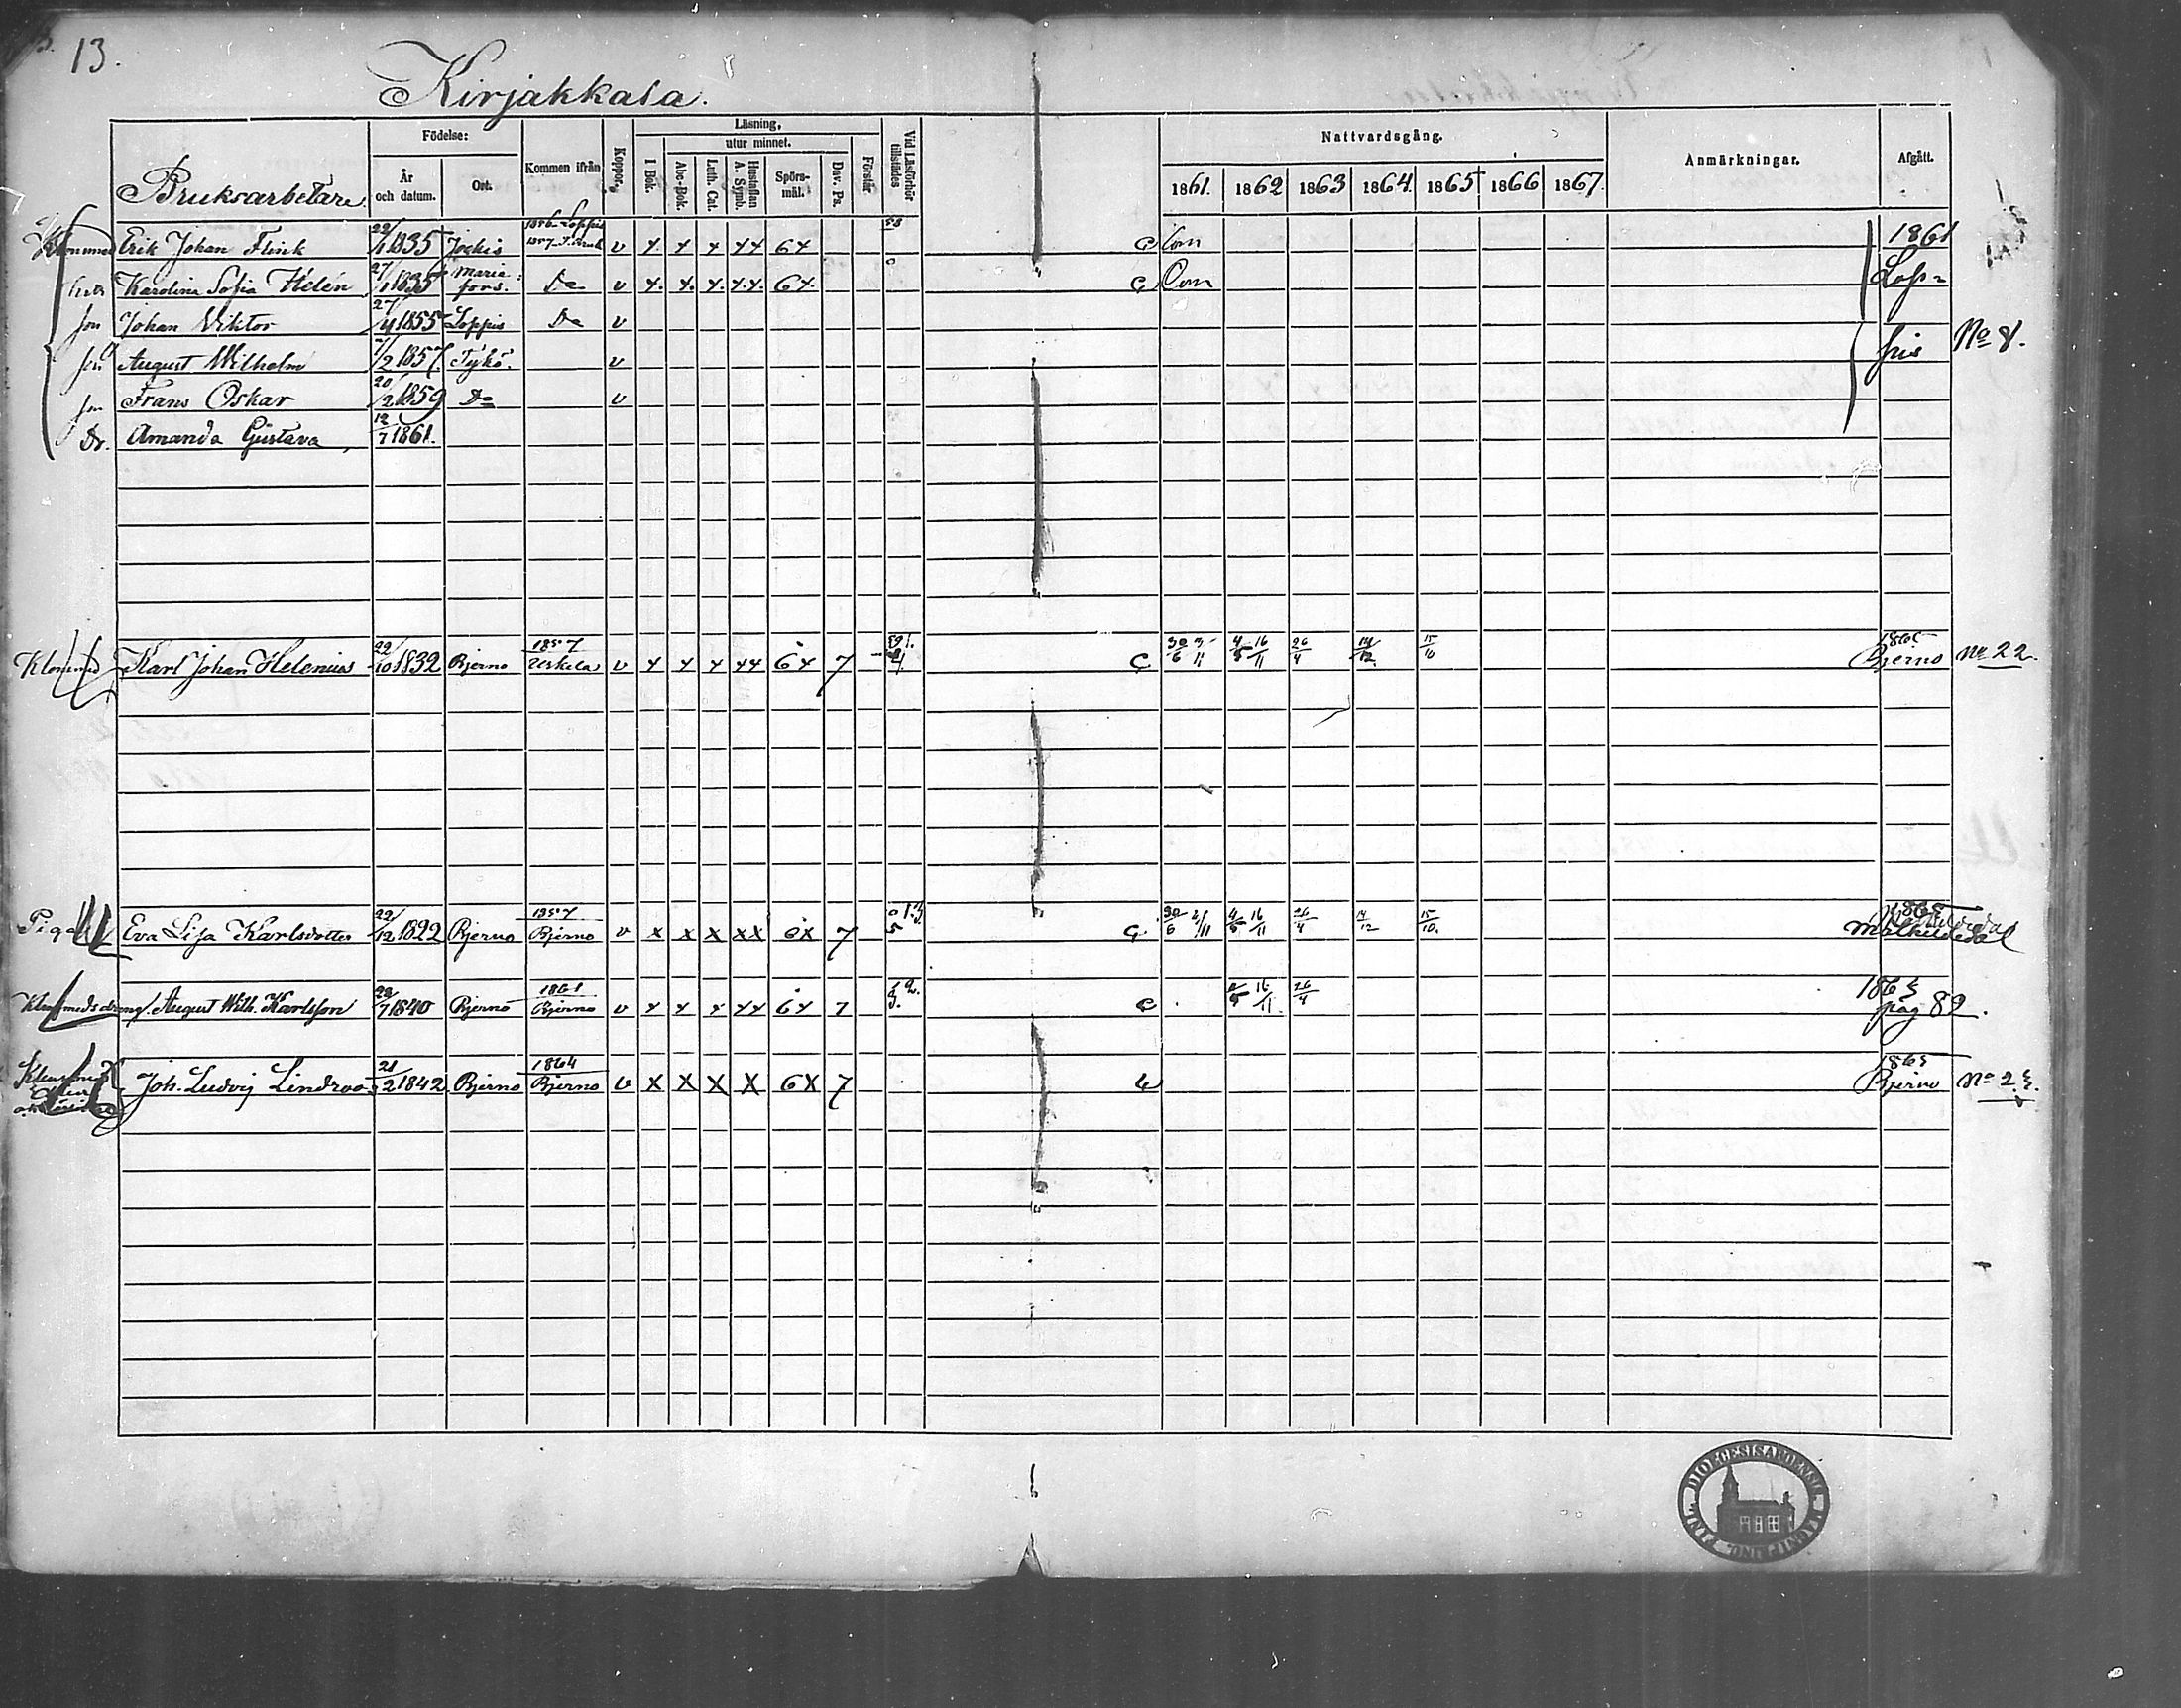 13.
Kirjakkala.
Bruksarbetare.
Födelse:
År och datum.
Ort.
Kommen ifrån
Koppor.
Läsning,
utur minnet.
I Bok.
Abc-Bok.
Luth. Cat.
Hustaflan A. Symb.
Spörsmål.
Dav. Ps.
Förstår
Vid Läsförhör tillstädes
Nattvardsgång.
1861. 1862 1863 1864. 1865 1866 1867.
Anmärkningar.
Afgått.
Erik Johan Flink 22/1 1835 Jockis 1856 Loppis 1857 v x x x xx 6x 58 C Com 1861
Karolina Sofia Helén 27/1 1835 Maria fors. Do v x. x. x. x.x. 6x. C Com
Son Johan Viktor 27/4 1855 Loppis Do v
Son August Wilhelm 7/2 1857. Tykö. v No 8.
Son Frans Oskar 20/2 1859 Do v
Dr. Amanda Gustava 12/7 1861.
Klensmed Karl Johan Helenius 22/10 1832 Bjerno 1857 Uskela v x x x xx 6x 7 C 30/6 4/5 16/11 26/4 14/12 15/10 1865 Bjerno No 22.
Piga Eva Lisa Karlsdotter 22/12 1822 Bjerno 1857 Bjerno v x x x xx 6x 7 C. 30/6 4/5 16/11 26/4 14/12 15/10. 1865 Mathildedal
Klensmedsdreng. August Wilh. Karlsson 22/7 1840 Bjerno 1861 Bjerno v x x x xx 6x 7 C 16/11. 26/4 1863 pag 82.
Joh. Ludvig Lindroos 21/2 1842 Bjerno 1864 Bjerno v x x x x 6x 7 1865 Bjerno